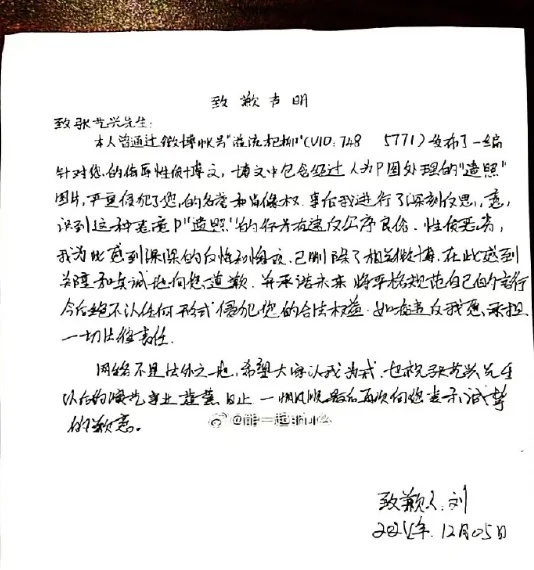 致歉声明
致张艺兴先生:
本人曾通过微博账号"溢流杞柳"(UID:748 5771)发布了一编
针对您的侮辱性质博文,博文中包含经过人为P图处理的"遗照"
图片,严重侵犯了您的名誉和肖像权.事后我进行了深刻反思,意
识到这种恶意P"遗照"的行为有违反公序良俗.性质恶劣,
我为此感到深深的自惭和悔改.已删除了相关微博.在此感到
和真诚地向您道歉.并承诺未来将严格规范自己的言行
今后绝不以任何形式侵犯您的合法权益.如有违反我愿承担
一切法律责任.
网络不是法外之地,希望大家以我为戒.也祝张艺兴先生
以后的演艺事业蒸蒸日上一帆风顺最后再次向您表示诚挚
的歉意。
致歉人:刘
12月05日